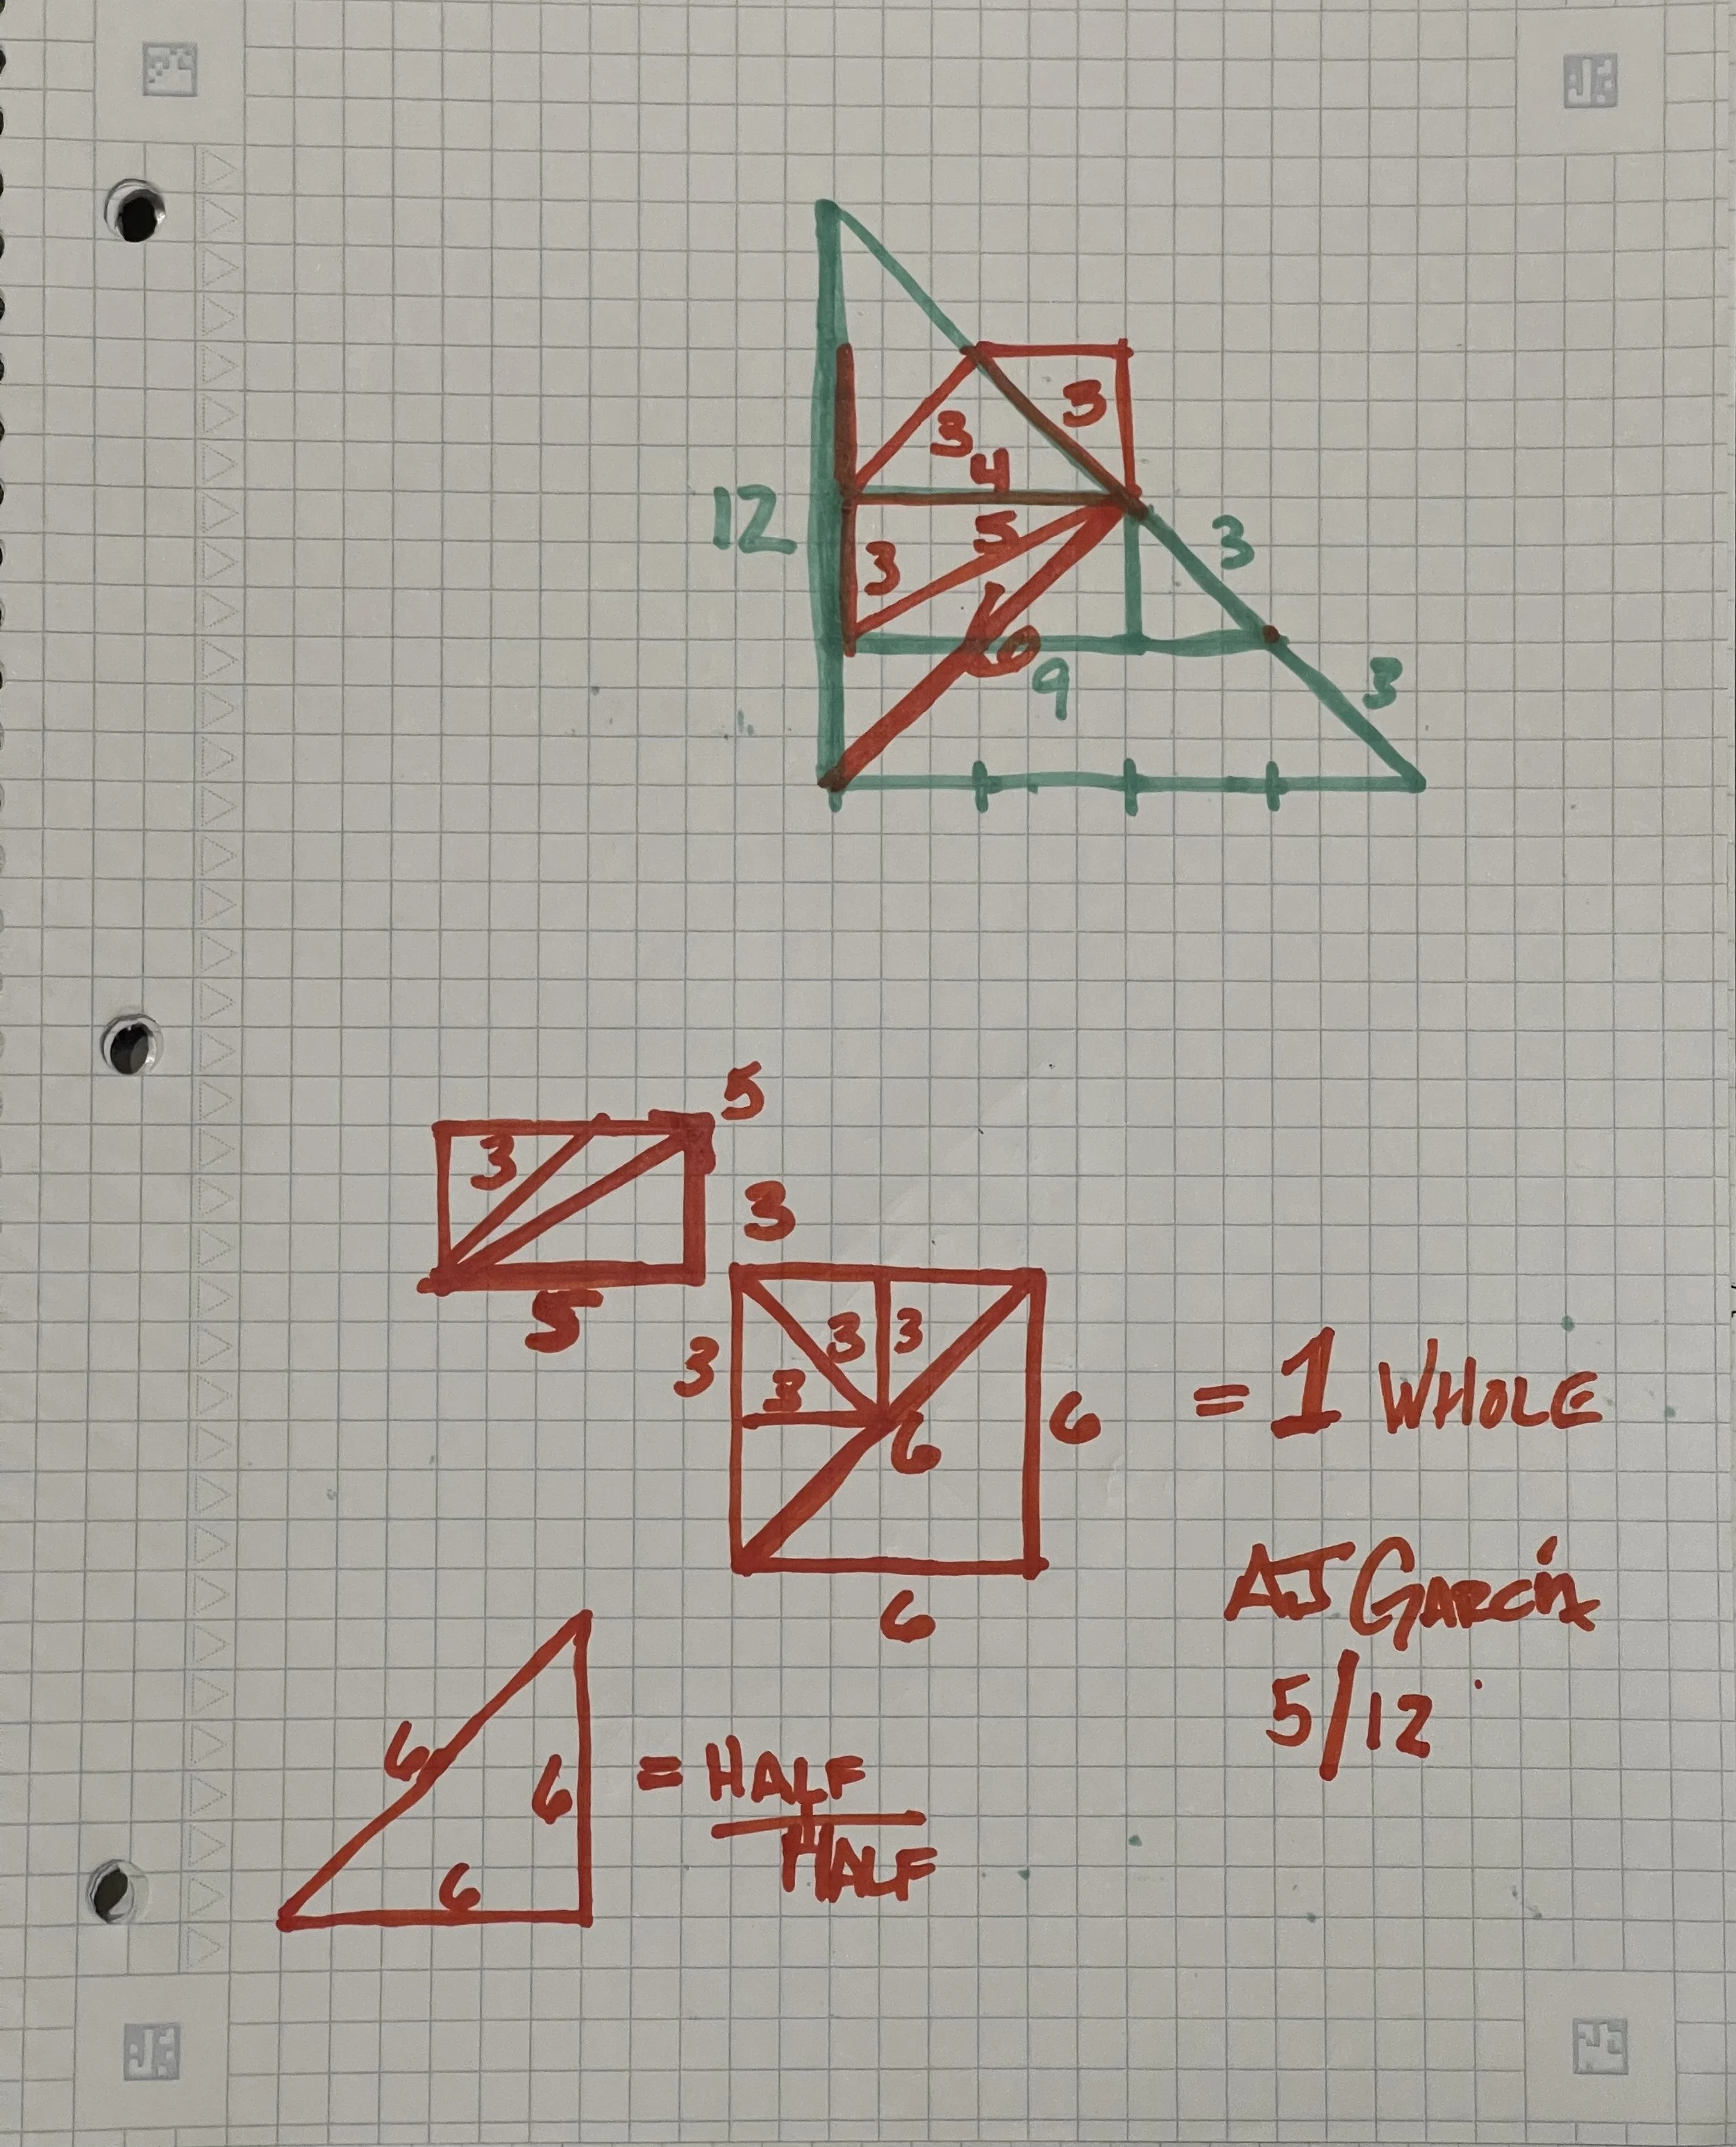 3
3
4
12
5
3
3
6
9
3
5
3
3
5
3
3
3
3
6
6
= 1 WHOLE
6
AJ GARCÍA
5/12
6
6
= HALF
HALF
6